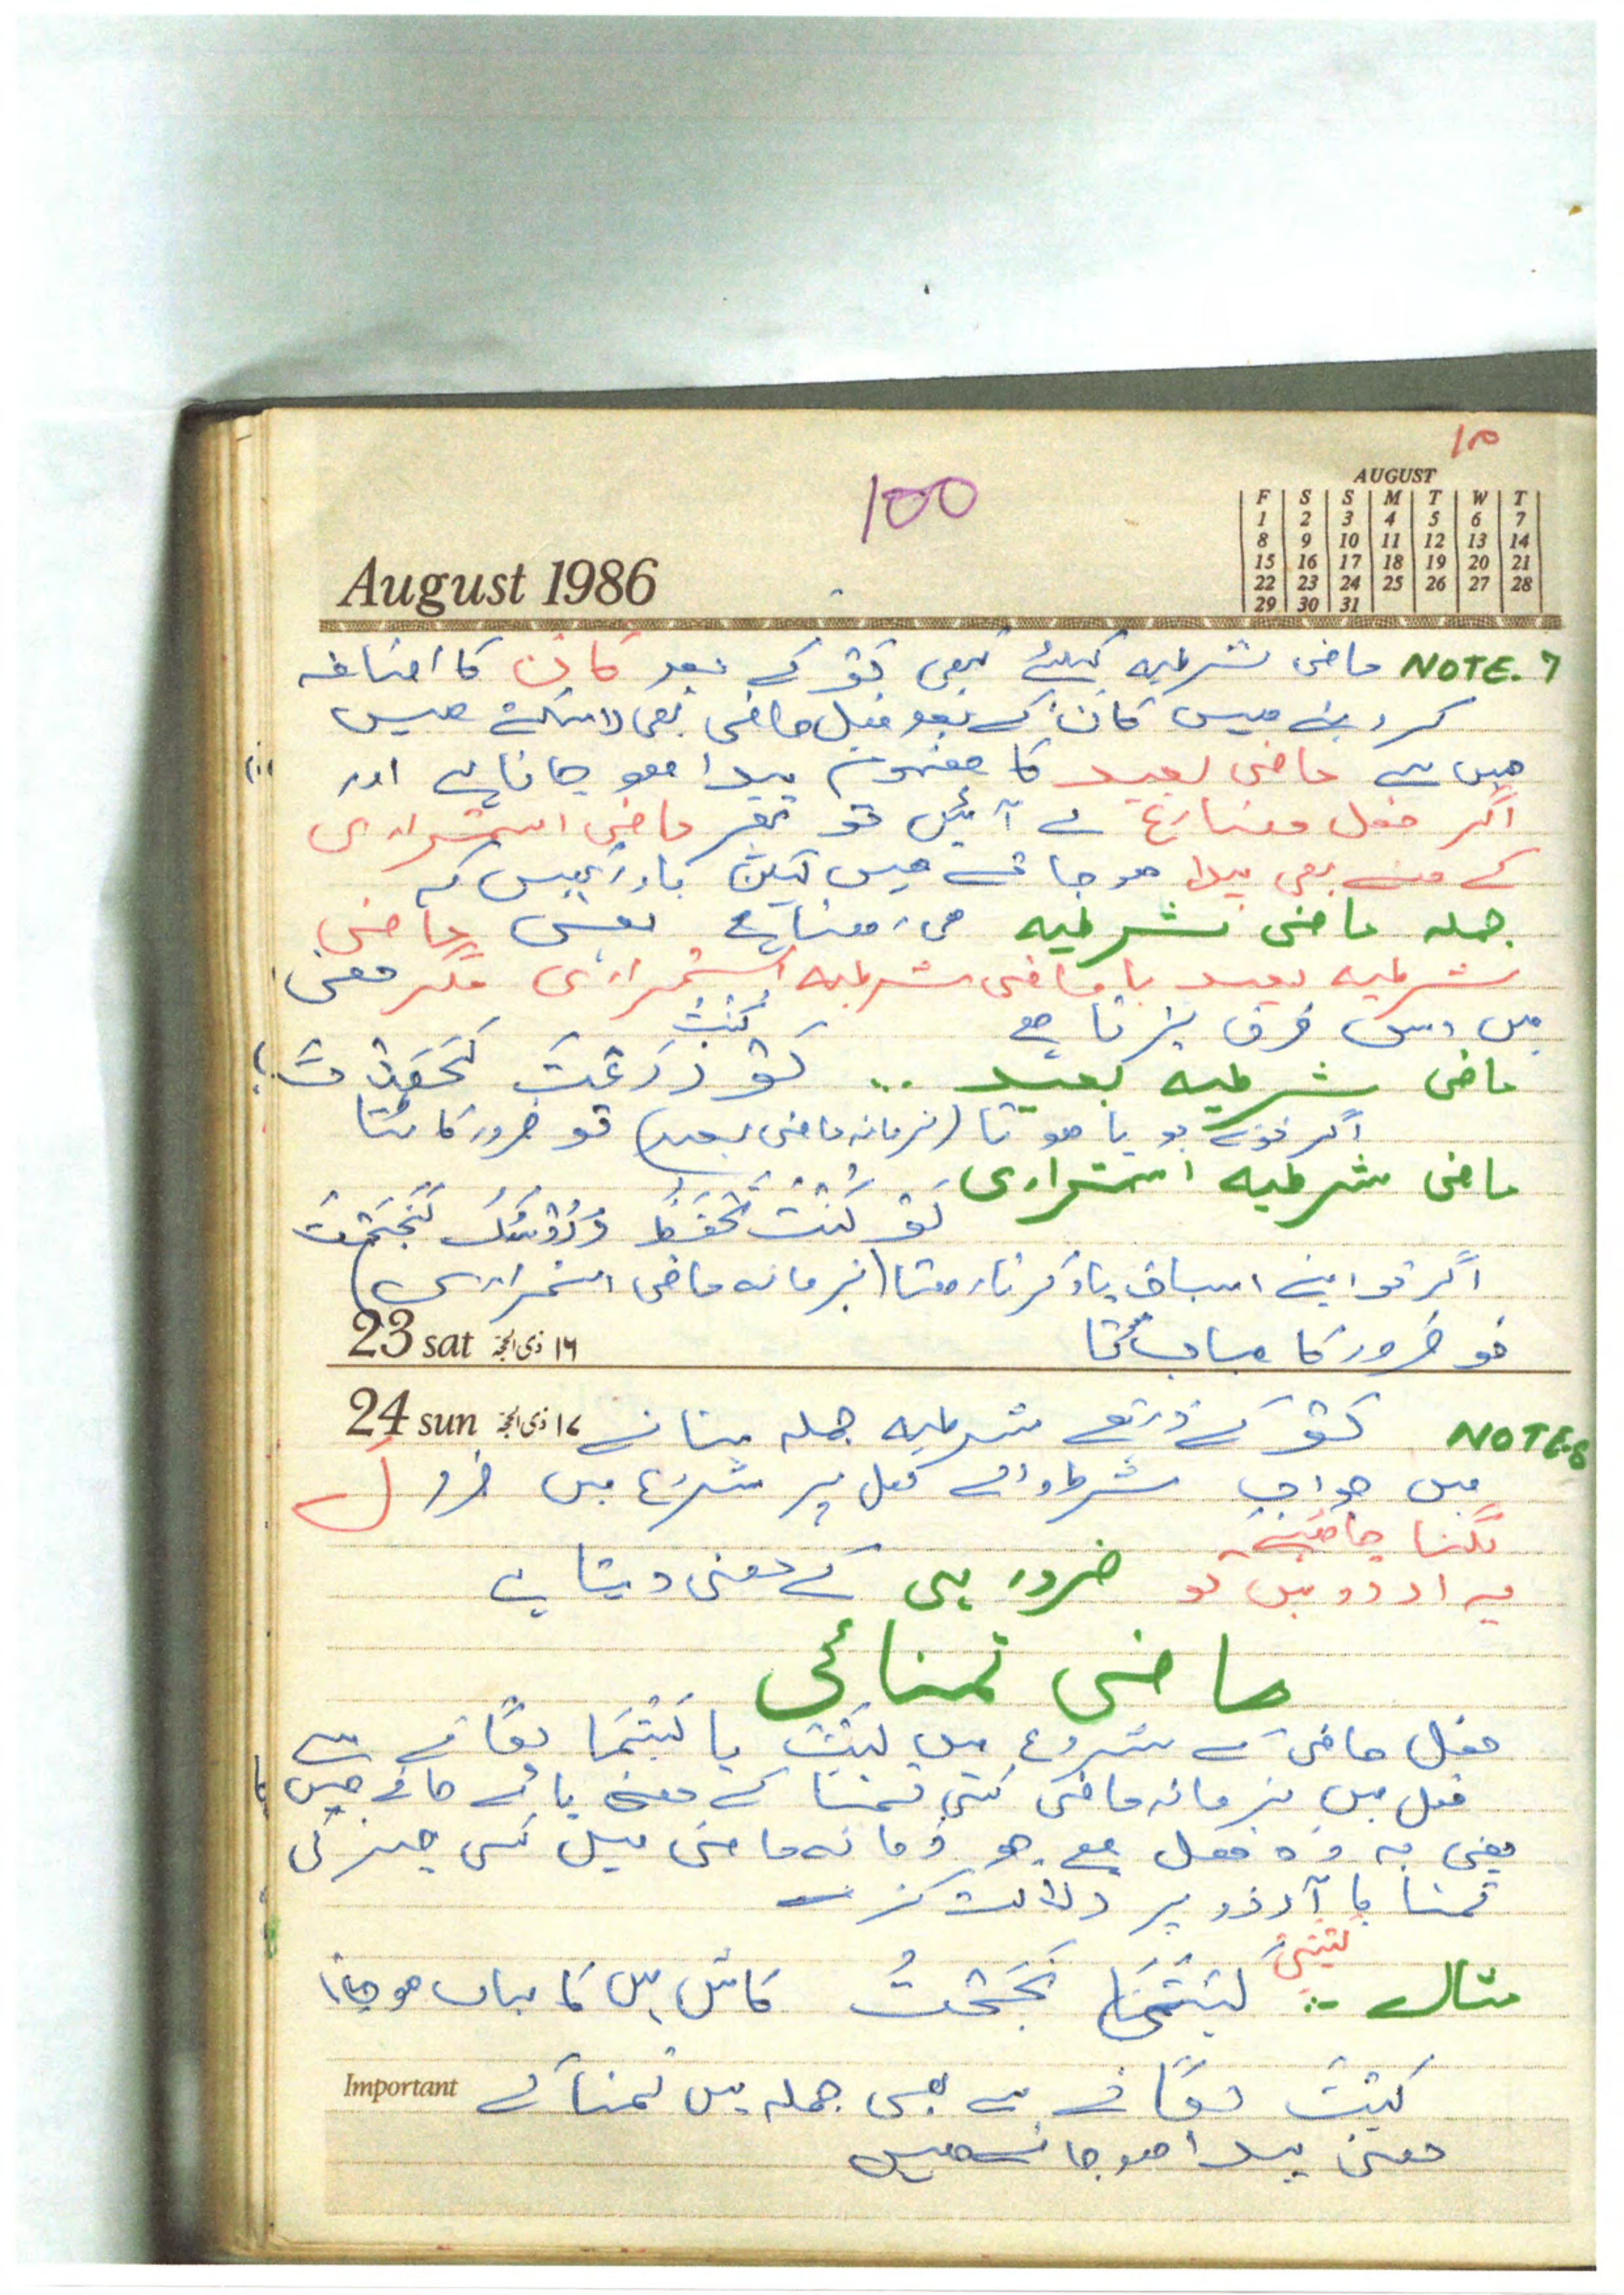 100
AUGUST
F S S M T W T
1 2 3 4 5 6 7
8 9 10 11 12 13 14
15 16 17 18 19 20 21
22 23 24 25 26 27 28
29 30 31
August 1986
NOTE.7 ماضی شرطیہ کیلئے کبھی لَو کے بعد کان کا اضافہ
کر دیتے ہیں کان کے بعد فعل ماضی بھی لا سکتے ہیں
جس سے ماضی بعید کا مفہوم پیدا ہو جاتا ہے اور
اگر فعل مضارع لے آئیں تو پھر ماضی استمراری
کے معنے بھی پیدا ہو جاتے ہیں لیکن یاد رکھیں کہ
جملہ ماضی شرطیہ ہی رہتا ہے یعنی ماضی
شرطیہ بعید یا ماضی شرطیہ استمراری مگر معنی
میں اس فرق پڑتا ہے
ماضی شرطیہ بعید .. لَو كُنْتَ زَرَعْتَ لَحَصَدْتَ
اگر تونے بویا ہوتا (بزمانہ ماضی بعید) تو ضرور کاٹتا
ماضی شرطیہ استمراری
لَو كُنْتَ تَحْفَظُ دُرُوْسَكَ لَنَجَحْتَ
اگر تو اپنے اسباق یاد کرتا رہتا (بزمانہ ماضی استمراری)
تو ضرور کامیاب ہوتا
23 sat ١٦ ذی الحجۃ
24 sun ١٧ ذی الحجۃ
NOTE.8 لَو کے ذریعے شرطیہ جملہ بنانے
میں جواب شرط والے فعل پر شروع میں ضرور لَ
لگنا چاہئیے
یہ اردو میں تو ضرور ہی کے معنی دیتا ہے
ماضی تمنائی
فعل ماضی کے شروع میں لَیْتَ یا لَیْتَمَا لگانے سے
فعل میں بزمانہ ماضی کسی تمنا کے معنے پائے جاتے ہیں
یعنی یہ وہ فعل ہے جو زمانہ ماضی میں کسی چیز کی
تمنا یا آرزو پر دلالت کرے
مثال :- لَيْتَنِيْ لَيْتَمَا نَجَحْتُ کاش میں کامیاب ہو جاتا
Important
لَیْتَ لگانے سے بھی جملہ میں تمنا کے
معنی پیدا ہو جاتے ہیں